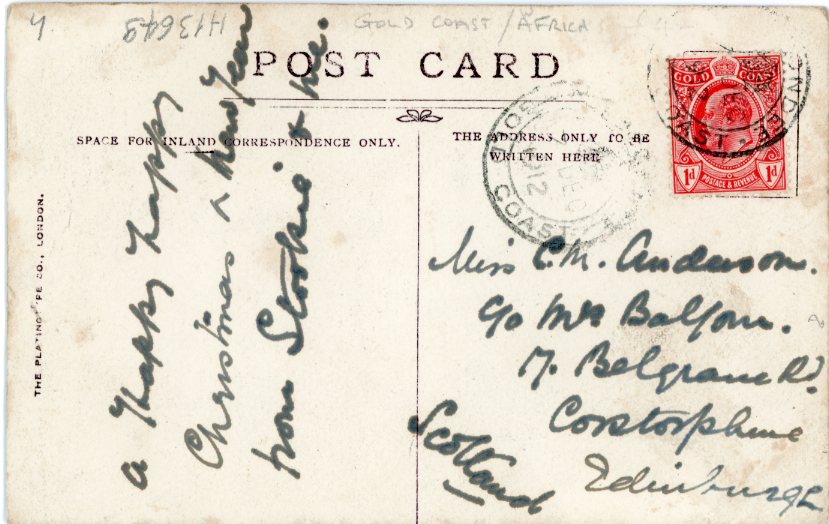 4
H13649
GOLD COAST / AFRICA
POST CARD
SPACE FOR INLAND CORRESPONDENCE ONLY.
THE ADDRESS ONLY TO BE
WRITTEN HERE
THE PLATINOTYPE CO., LONDON.
a Happy happy
Christmas & New Year
from Stookie & me.
GOLD COAST
POSTAGE & REVENUE
1d 1d
COAST
DEC
1912
COAST
Miss C.M. Anderson.
c/o Mrs Balfour.
17. Belgrave Rd.
Corstorphine
Edinburgh
Scotland